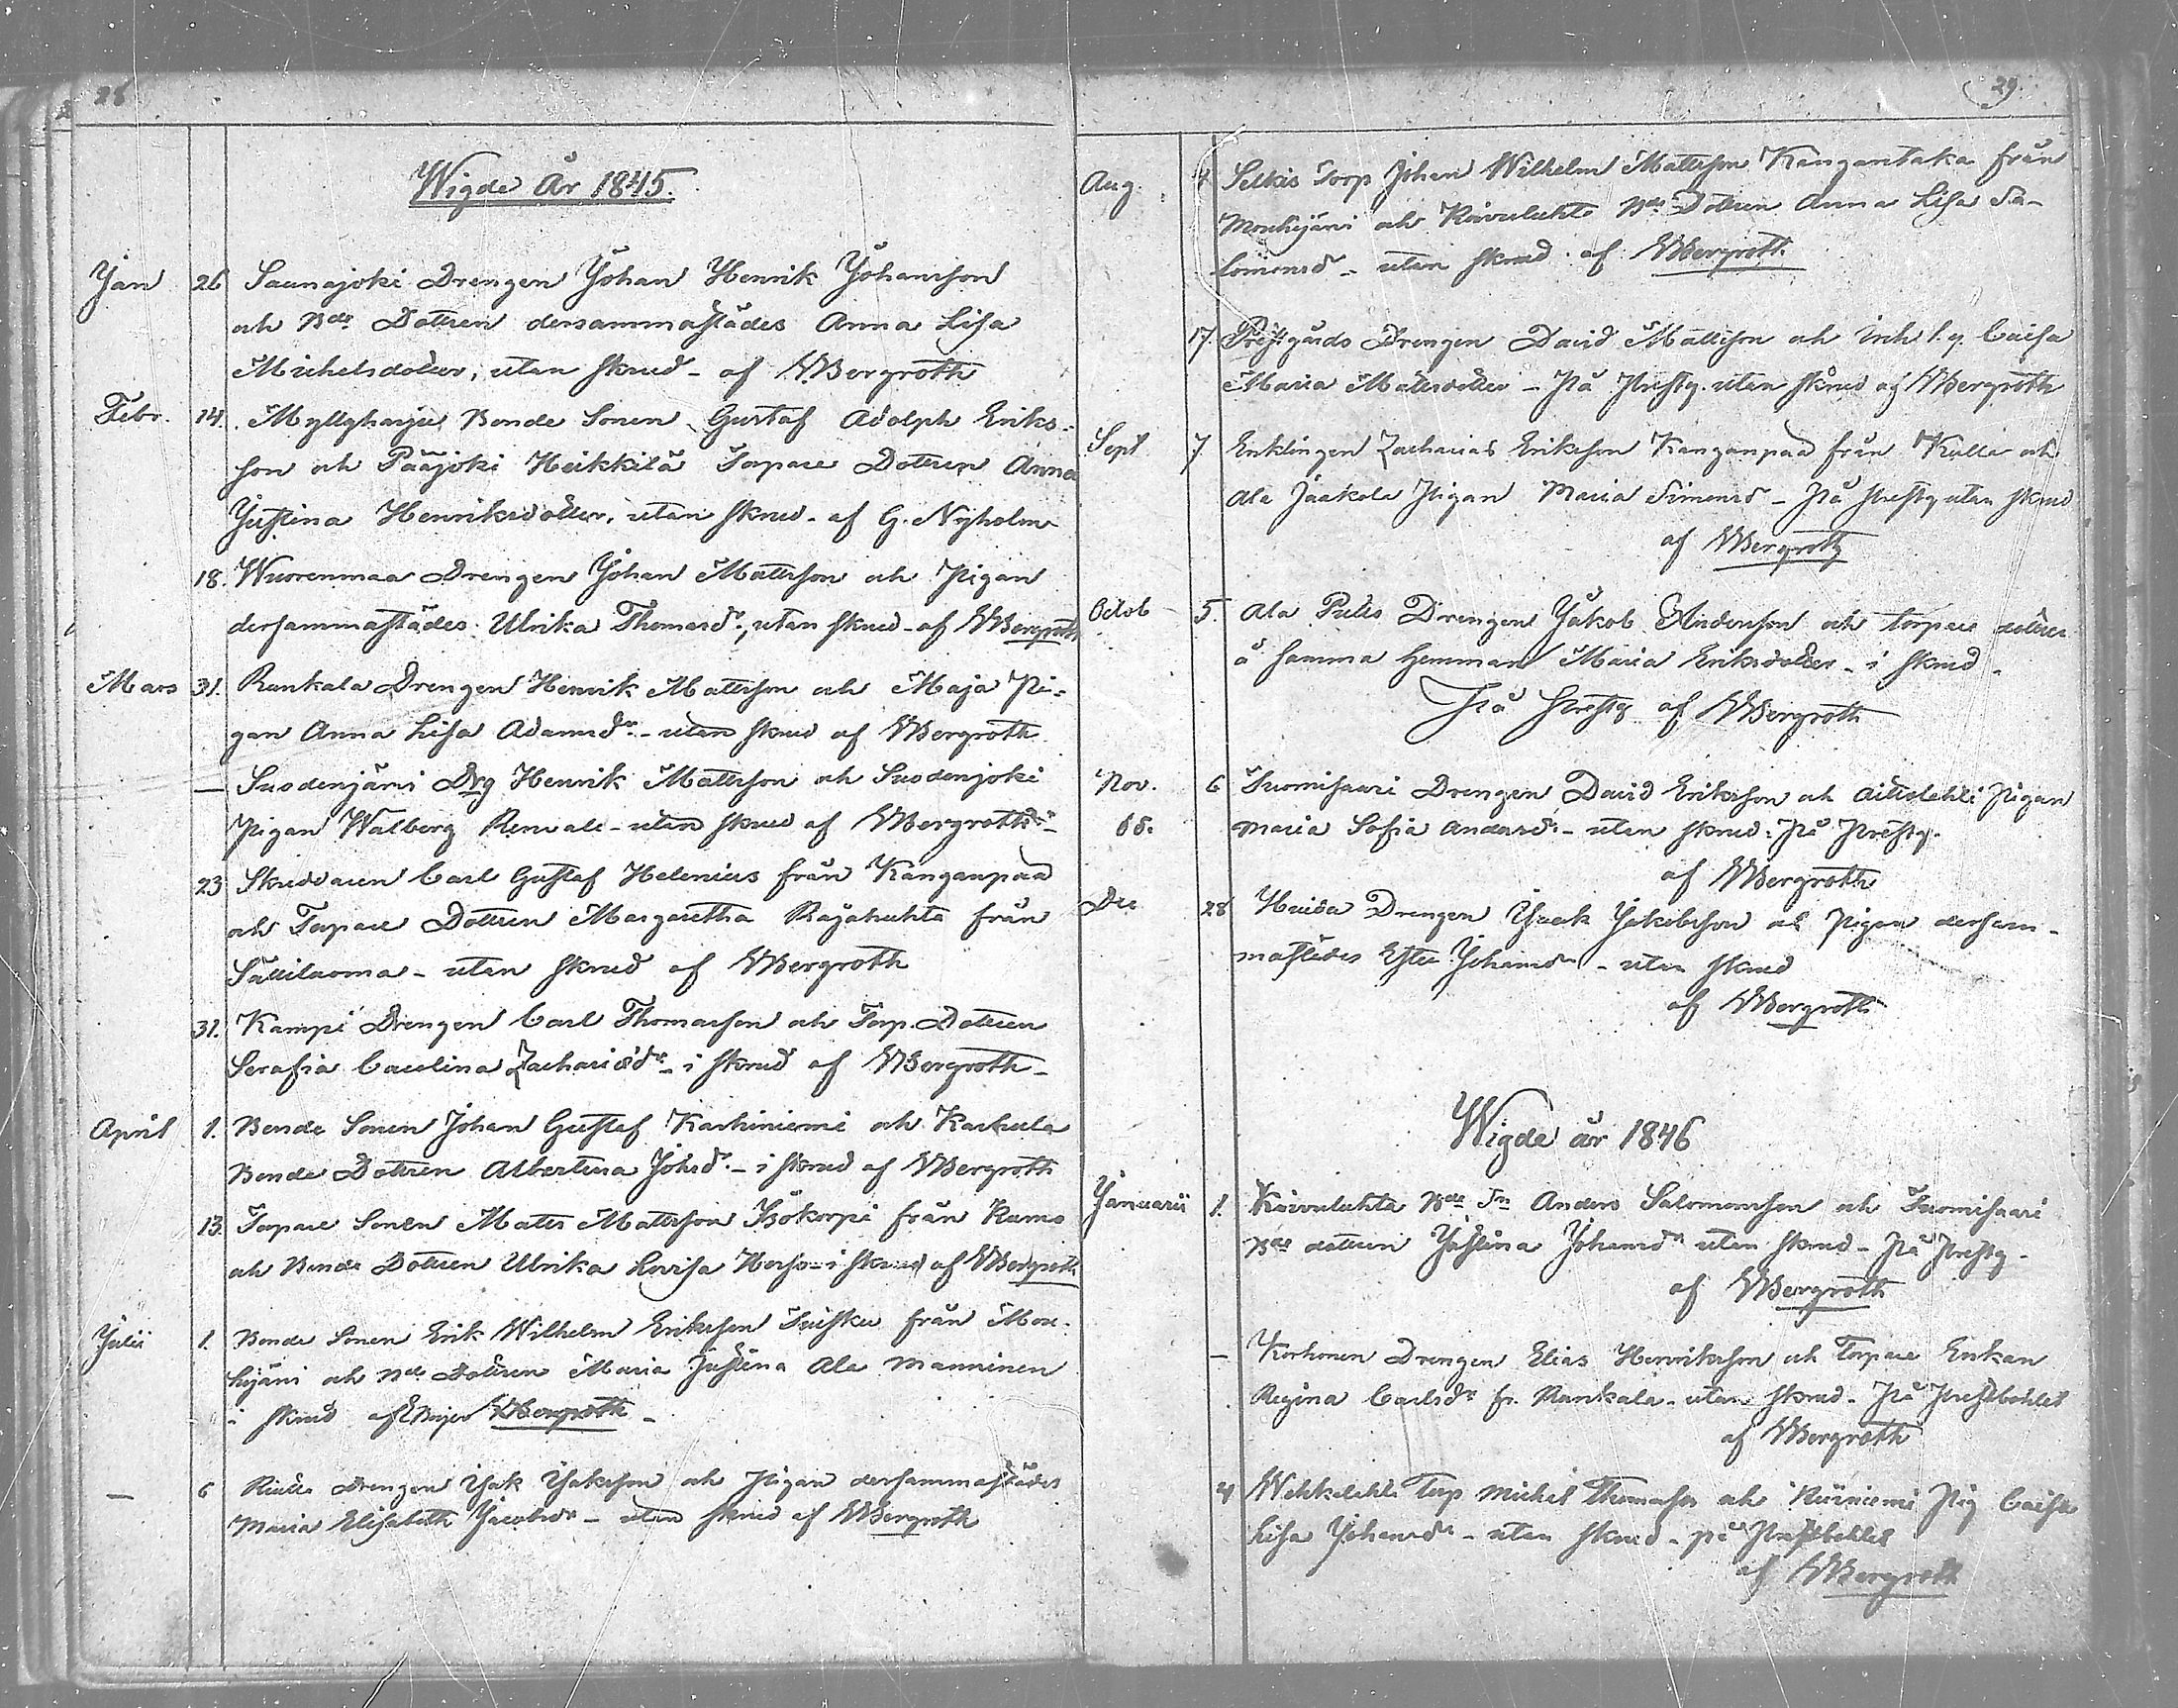 28
Wigde År 1845.
Jan 26 Saunajoki Drengen Johan Henrik Johansson
och Bde Dottren dersammastädes Anna Lisa
Michelsdotter, utan skrud - af WBergroth
Febr. 14. Myllyharju Bonde Sonen Gustaf Adolph Eriks-
son och Pääjoki Heikkilä Torpare Dottren Anna
Justina Henriksdotter, utan skrud - af G. Nyholm
18. Wuorenmaa Drengen Johan Mattsson och Pigan
dersammastädes Ulrika Thomasdr, utan skrud - af WBergroth
Mars 31. Rankala Drengen Henrik Mattsson och Maja Pi-
gan Anna Lisa Adamsdr - utan skrud af WBergroth
— Suodenjärvi Drg Henrik Mattsson och Suodenjoki
Pigan Walborg - utan skrud af WBergroth
23 Skreddaren Carl Gustaf Helenius från Kanganpää
och Torpare Dottren Margaretha Rajahuhta från
- utan skrud af WBergroth
31. Kampi Drengen Carl Thomasson och Torp. Dottren
Serafia Carolina Zachariasdr - i skrud af WBergroth -
April 1. Bonde Sonen Johan Gustaf Karhiniemi och Karkula
Bonde Dottren Albertina Johsdr - i skrud af WBergroth
13. Torpare Sonen Matts Mattsson Isökorpi från
och Bonde Dottren Ulrika Lovisa - i skrud af WBergroth
Julii 1. Bonde Sonen Erik Wilhelm Eriksson från Mou-
hijärvi och Bde Dottren Maria Justina Ala Manninen
i skrud af WBergroth -
— 6 Drengen Isak Isaksson och Pigan dersammastädes
Maria Elisabeth Jacobsdr - utan skrud af WBergroth
29.
Aug. 4 Selkis Torp Johan Wilhelm Mattsson Kangantaka från
Mouhijärvi och Koivuluhta Bde Dottren Anna Lisa Sa-
lomonsd - utan skrud af WBergroth
17. Prestgårds Drengen David Mattsson och Caisa
Maria Mattsdotter - På Prestg. utan skrud af WBergroth
Sept 7 Enklingen Zacharias Eriksson Kanganpää från Kulla och
Ala Jaakola Pigan Maria Simonsd - På Prestg utan skrud
af WBergroth
Octob 5. Ala Drengen Jakob Andersson och torpare dotter
å samma hemman Maria Eriksdotter - i skrud -
På Prestg af WBergroth
Nov. 6 Suomisaari Drengen David Eriksson och Pigan
Maria Sofia Andersdr - utan skrud. På Prestg.
af WBergroth
Dec 28 Drengen Isaak Jakobsson och Pigan dersam-
mastädes Johansdr - utan skrud
af WBergroth
Wigde år 1846
Januarii 1. Koivuluhta Bde Sn Anders Salomonsson och Suomisaari
Bde dottren Justina Johansdr utan skrud - På Prestg.
af WBergroth
— Korhonen Drengen Elias Henriksson och Torpare Enkan
Regina Carlsdr fr. Rankala - utan skrud - På Prestbohlet
af WBergroth
4 Torp Michel Thomasson och Pig Caisa
Lisa Johansdr - utan skrud - på Prestbohlet
af WBergroth